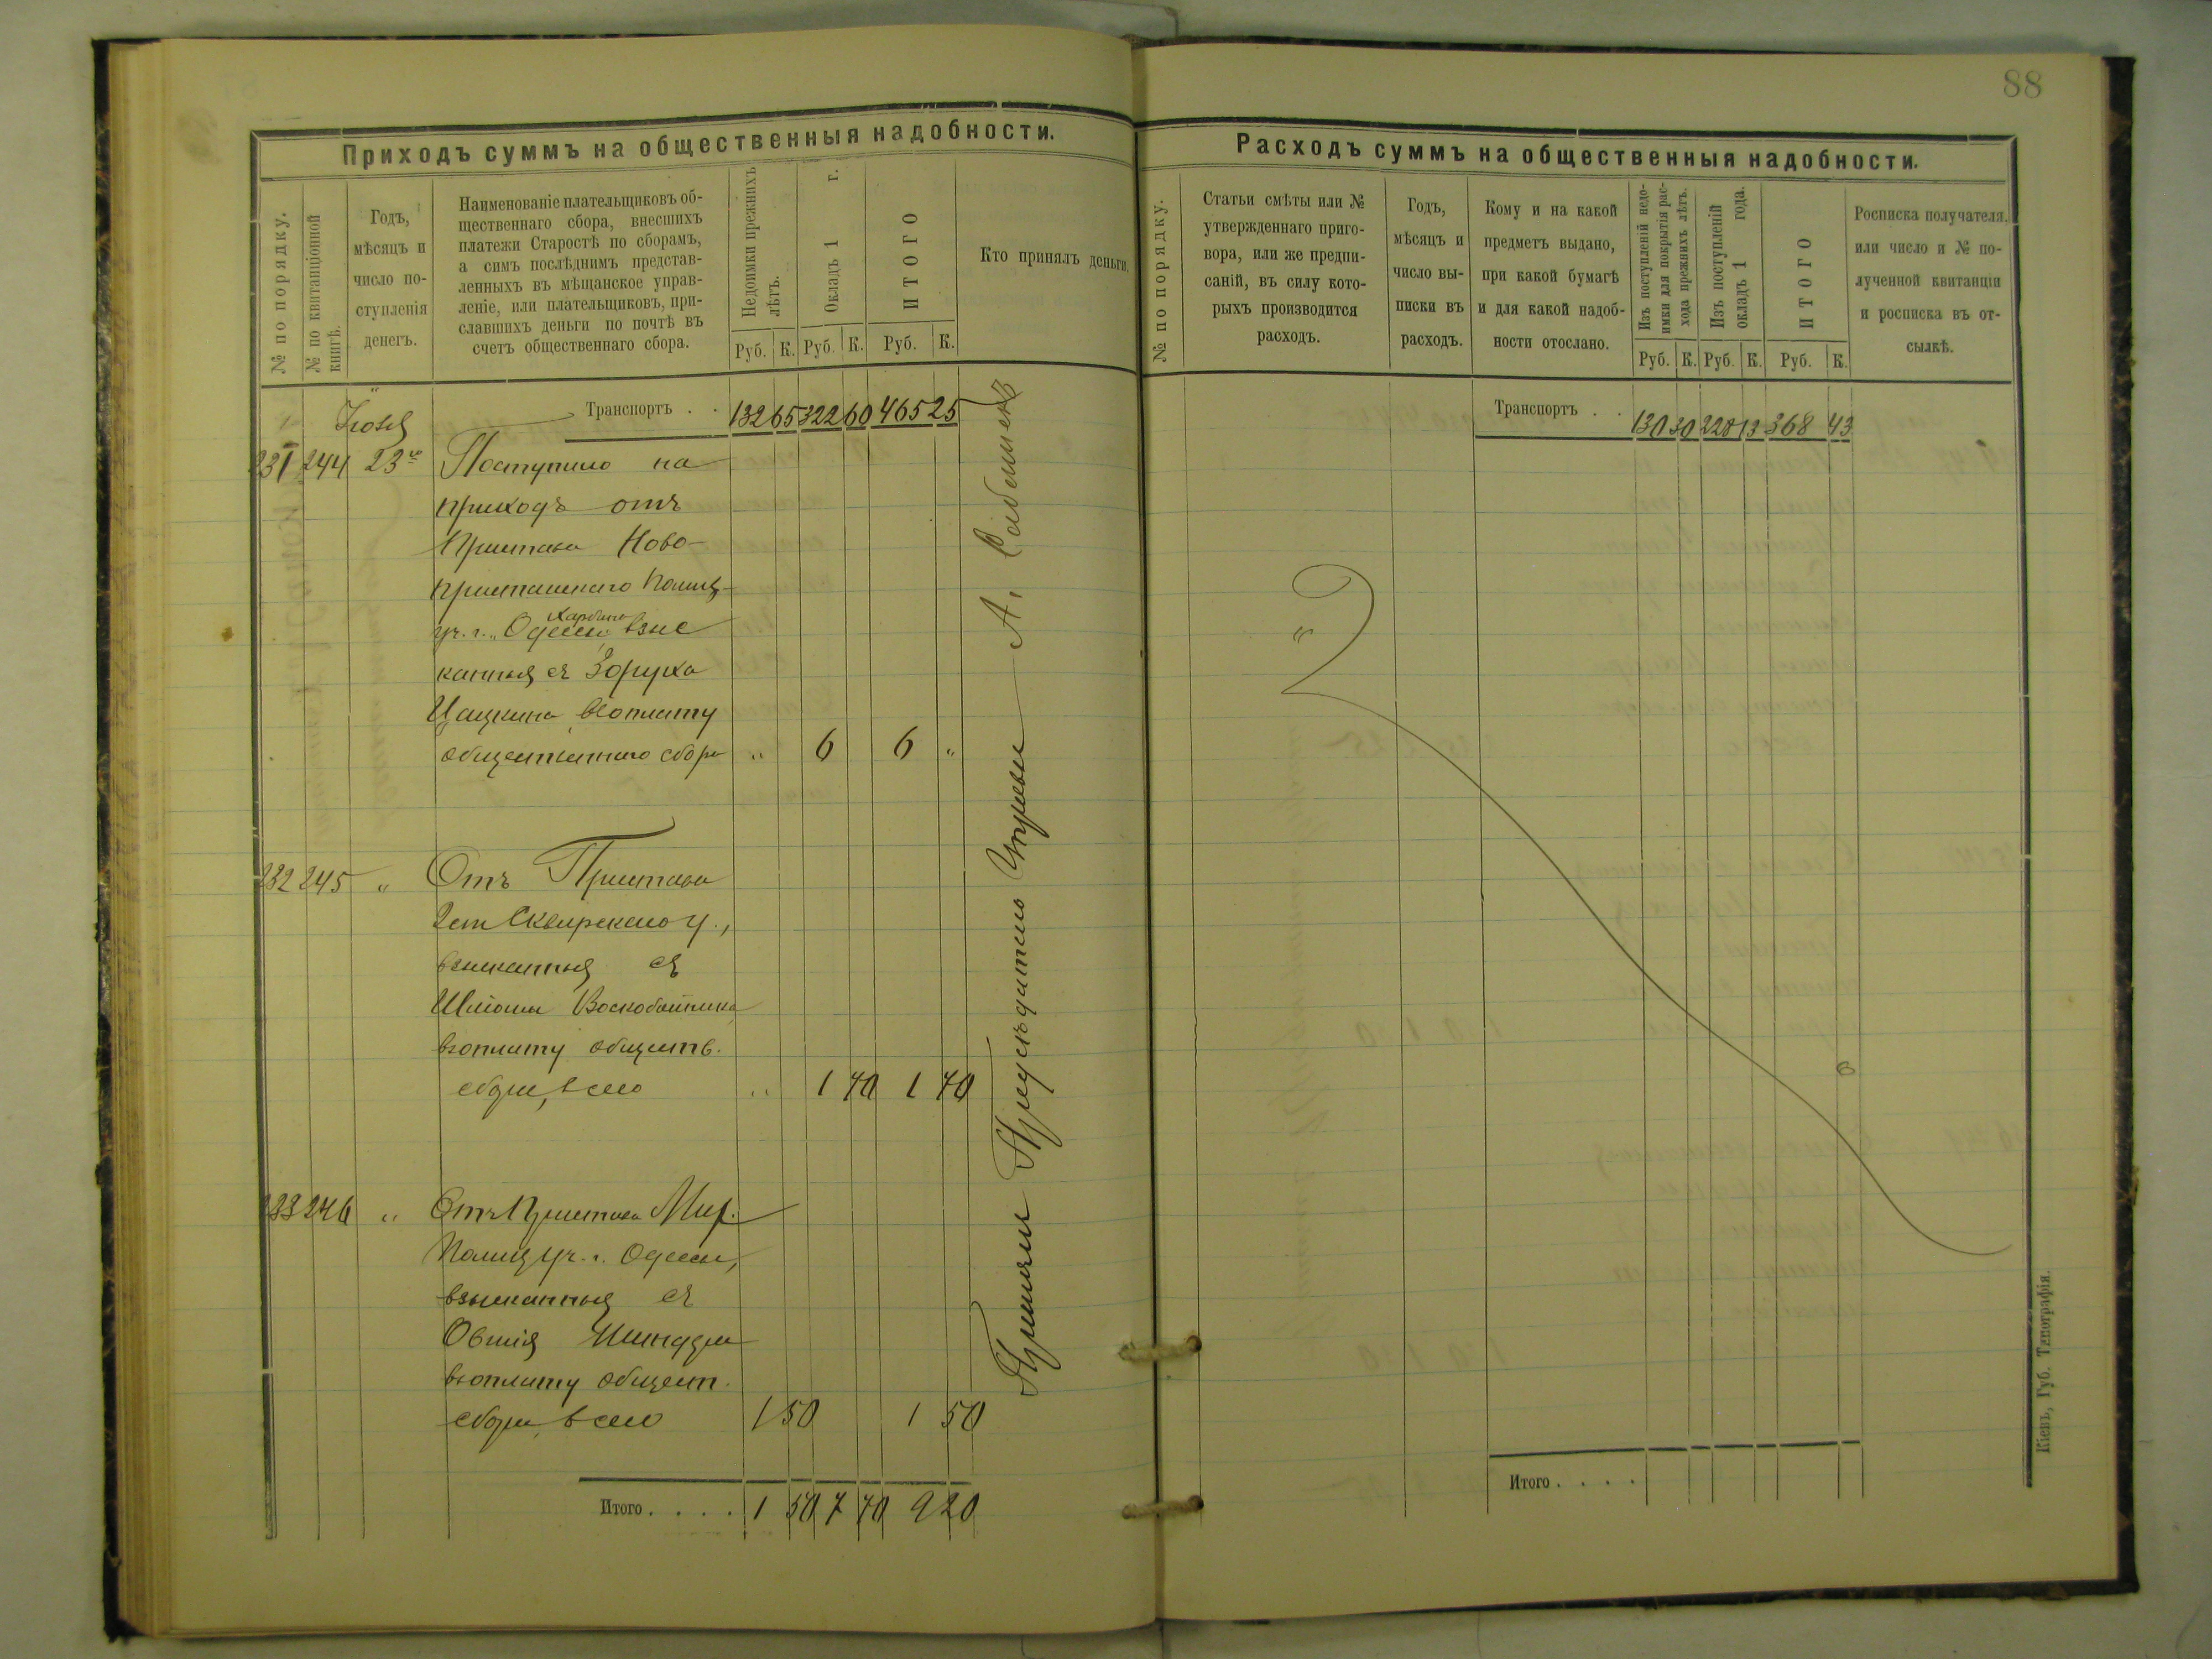 88
Приходъ суммъ на общественныя надобности.
№ по порядку.
№ по квитанціонной
книгѣ.
Годъ,
мѣсяцъ и
число по-
ступленія
денегъ.
Наименованіе плательщиковъ об-
щественнаго сбора, внесшихъ
платежи Старостѣ по сборамъ,
а симъ послѣднимъ представ-
ленныхъ въ мѣщанское управ-
леніе, или плательщиковъ, при-
славшихъ деньги по почтѣ въ
счетъ общественнаго сбора.
Недоимки прежнихъ
лѣтъ.
Окладъ 1 г.
ИТОГО
Кто принялъ деньги.
Руб. К. Руб. К. Руб. К.
Транспортъ . . 132 65 322 60 465 25
231 244 23го Поступило на
приходъ отъ
Пристава Ново-
уч. г. Одессы взыс
канныя съ
въ оплату
общественнаго сбора " 6 6 "
232 245 " Отъ Пристава
2 ст Сквирскаго у.,
взысканныя съ
Шліомы Воскобойника
въ оплату обществ.
сбора, всего " 1 70 1 70
233 246 " Отъ Пристава Мих.
Полиц уч. г. Одессы,
взысканныя съ
Овшія
въ оплату общест.
сбора, всего 1 50 1 50
Итого . . . . 1 50 7 70 9 20
Приняли Предсѣдатель Управы А.
Расходъ суммъ на общественныя надобности.
№ по порядку.
Статьи смѣты или №
утвержденнаго приго-
вора, или же предпи-
саній, въ силу кото-
рыхъ производится
расходъ.
Годъ,
мѣсяцъ и
число вы-
писки въ
расходъ.
Кому и на какой
предметъ выдано,
при какой бумагѣ
и для какой надоб-
ности отослано.
Изъ поступленій недо-
имки для покрытія рас-
хода прежнихъ лѣтъ.
Изъ поступленій
окладъ 1 года.
ИТОГО
Росписка получателя.
или число и № по-
лученной квитанціи
и росписка въ от-
сылкѣ.
Руб. К. Руб. К. Руб. К.
Транспортъ . . 130 30 228 13 368 43
Итого . . . .
Кіевъ, Губ. Типографія.